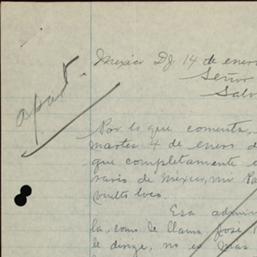 apart.
Mexico D.F. 14 de enero
Señor
Salv
Por lo que comenta,
martes 4 de enero d
que completamente
rario de México, mi Pa
vuelto loco.
Esa admir
la, como le llama José
le dirige, no es mas